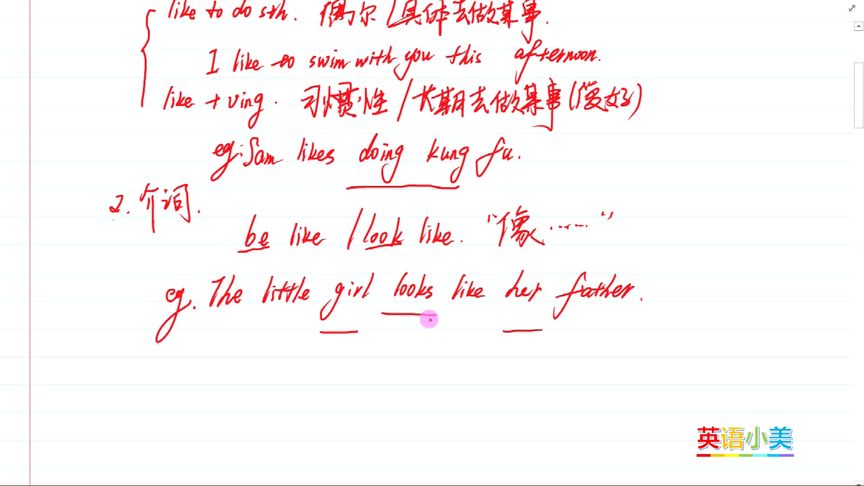 like to do sth. 偶尔/具体去做某事.
I like to swim with you this afternoon.
like + ving. 习惯性/长期去做某事(爱好)
eg: Sam likes doing kung fu.
2. 介词.
be like / look like. "像……"
eg. The little girl looks like her father.
英语小美